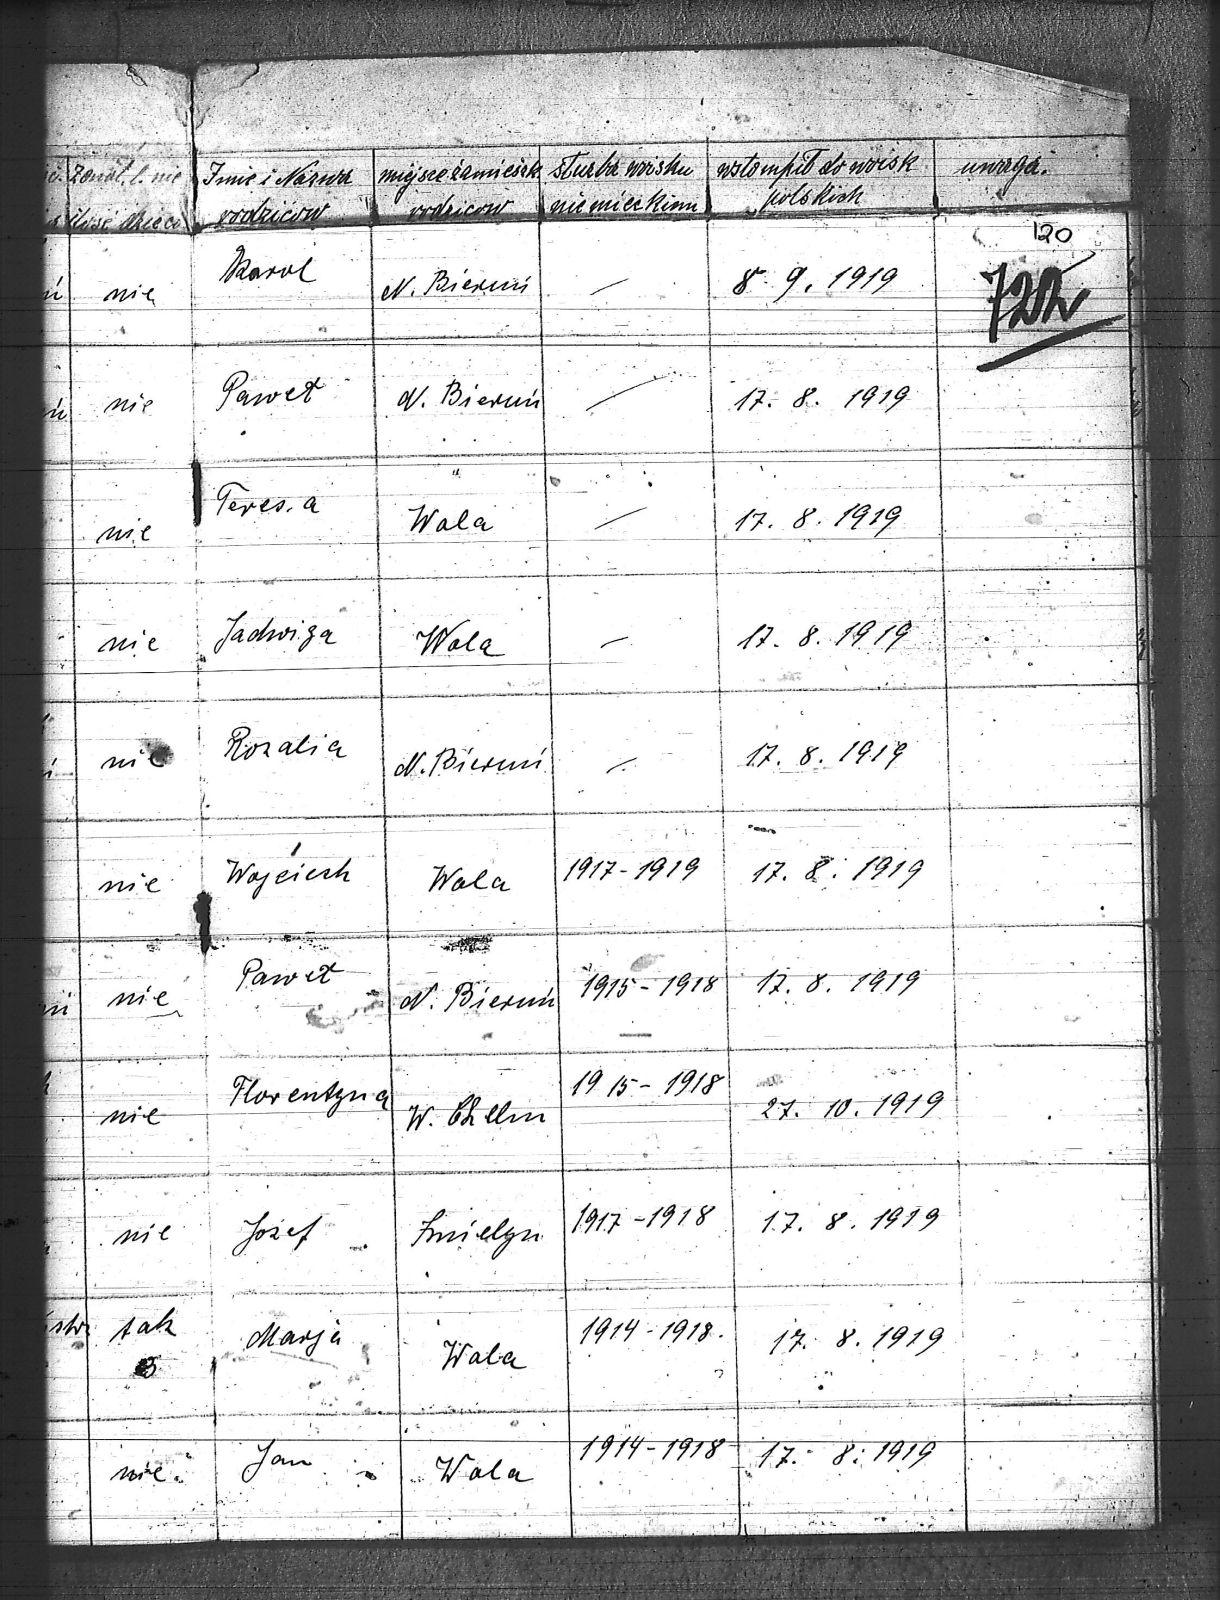 żonat. l. nie Imie i Nazwa miejsce zamieszk służba wojsku wstompił do wojsk uwaga.
ilość dzieci rodzicow rodzicow niemieckimu polskich
120
722
nie Karol N. Bieruń — 8. 9. 1919
nie Paweł N. Bieruń — 17. 8. 1919
"
nie Teresia Wola — 17. 8. 1919
nie Jadwiga Wola — 17. 8. 1919
nie Rozalia N. Bieruń — 17. 8. 1919
nie Wojciech Wola 1917-1919 17. 8. 1919
nie Paweł N. Bieruń 1915-1918 17. 8. 1919
nie Florentyna W. Chelm 1915-1918 27. 10. 1919
nie Jozef Imielyn 1917-1918 17. 8. 1919
tak Marja Wola 1914-1918. 17. 8. 1919
3
nie Jan Wola 1914-1918 17. 8. 1919